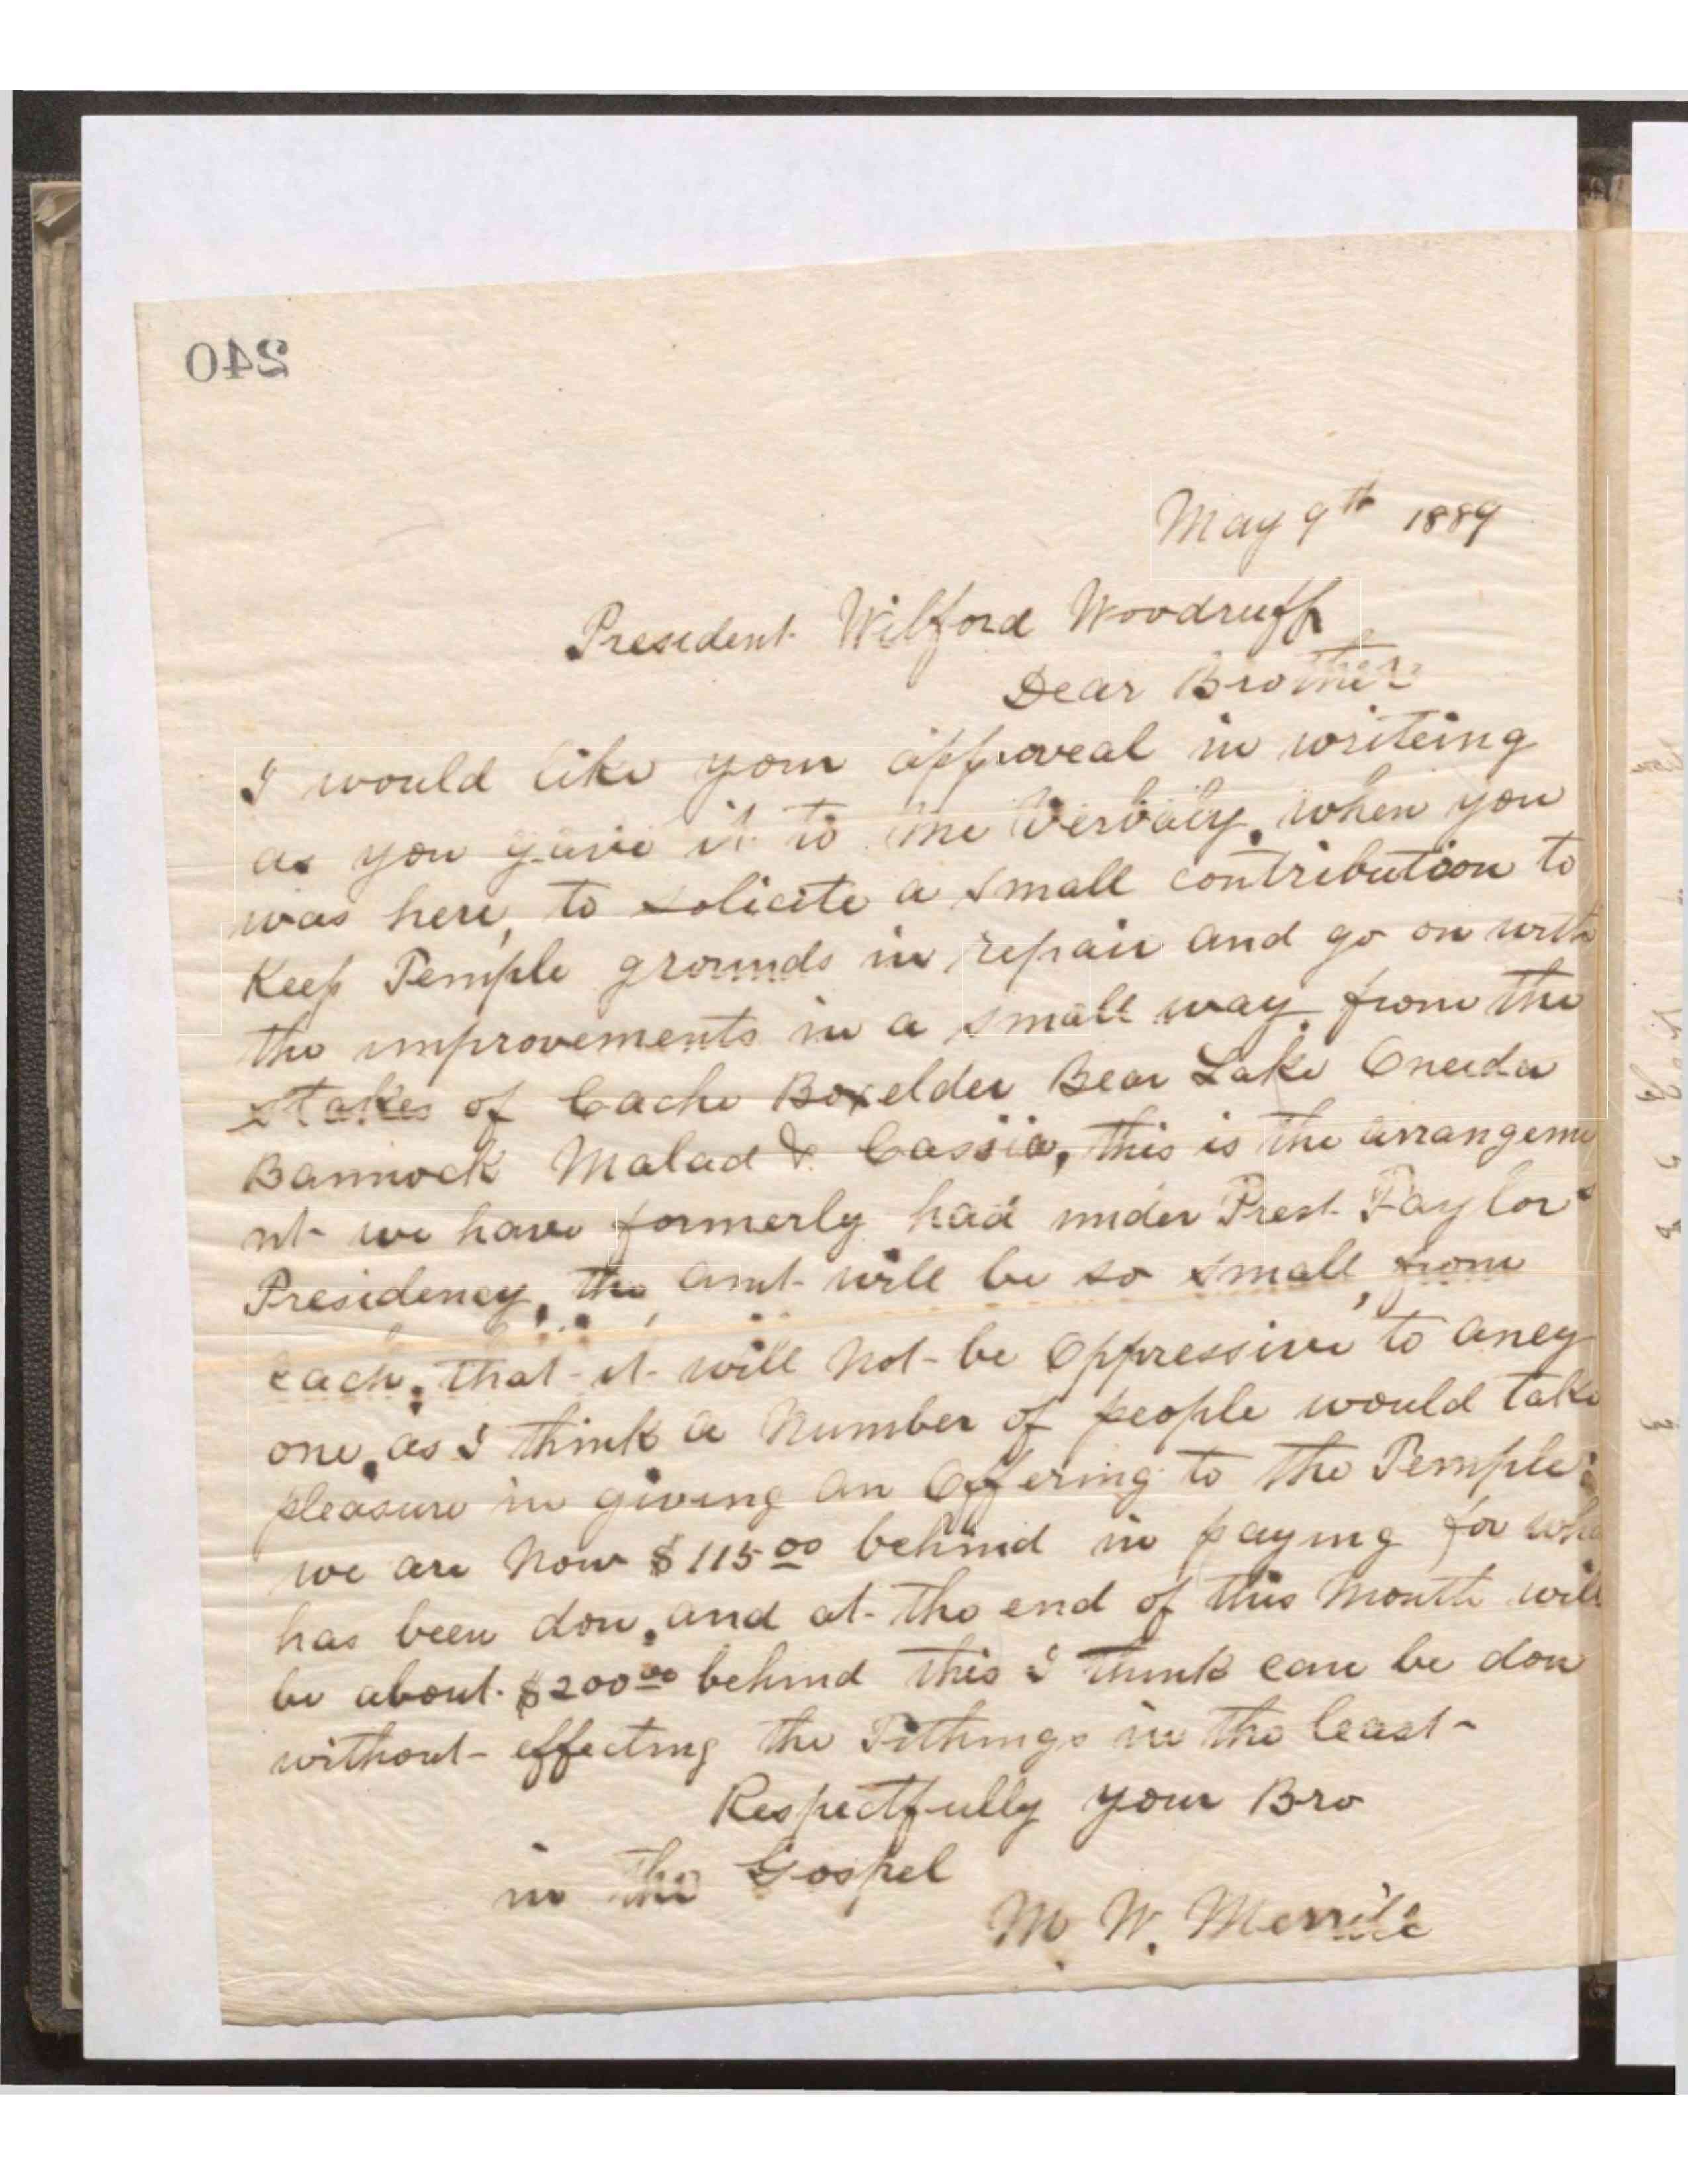 240
May 9th 1889
President Wilford Woodruff
Dear Brother
I would like your approveal in writeing
as you gave it to me Verbaly, when you
was here, to solicite a small contribution to
Keep Temple grounds in repair and go on with
the improvements in a small way, from the
stakes of Cache Boxelder Bear Lake Oneida
Bannock Malad & Cassia, this is the arrangeme
nt we have formerly had under Prest Taylor's
Presidency, the amt will be so small, from
each, that it will not be Oppressive to aney
one, as I think a Number of people would take
pleasure in giving an Offering to the Temple:
we are Now $115.00 behind in paying for
has been don, and at the end of this Month will
be about $200.00 behind this I think can be don
without effecting the Tithings in the least
Respectfully your Bro
in the Gospel
M. W. Merrill